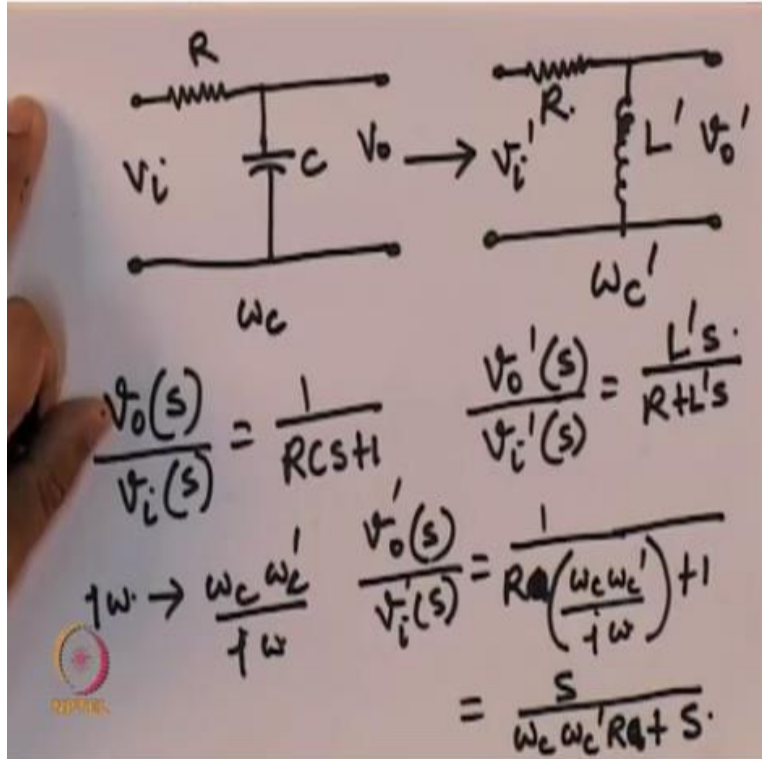 R
V_i C V_o → V_i' R. L' V_o'
ω_c ω_c'
V_o(s)/V_i(s) = 1/(RCS+1) V_o'(s)/V_i'(s) = L's./(R+L's)
jω. → ω_c ω_c'/jω V_o'(s)/V_i'(s) = 1/(RC(ω_c ω_c'/jω)+1)
= S/(ω_c ω_c' RC + S.)
NPTEL